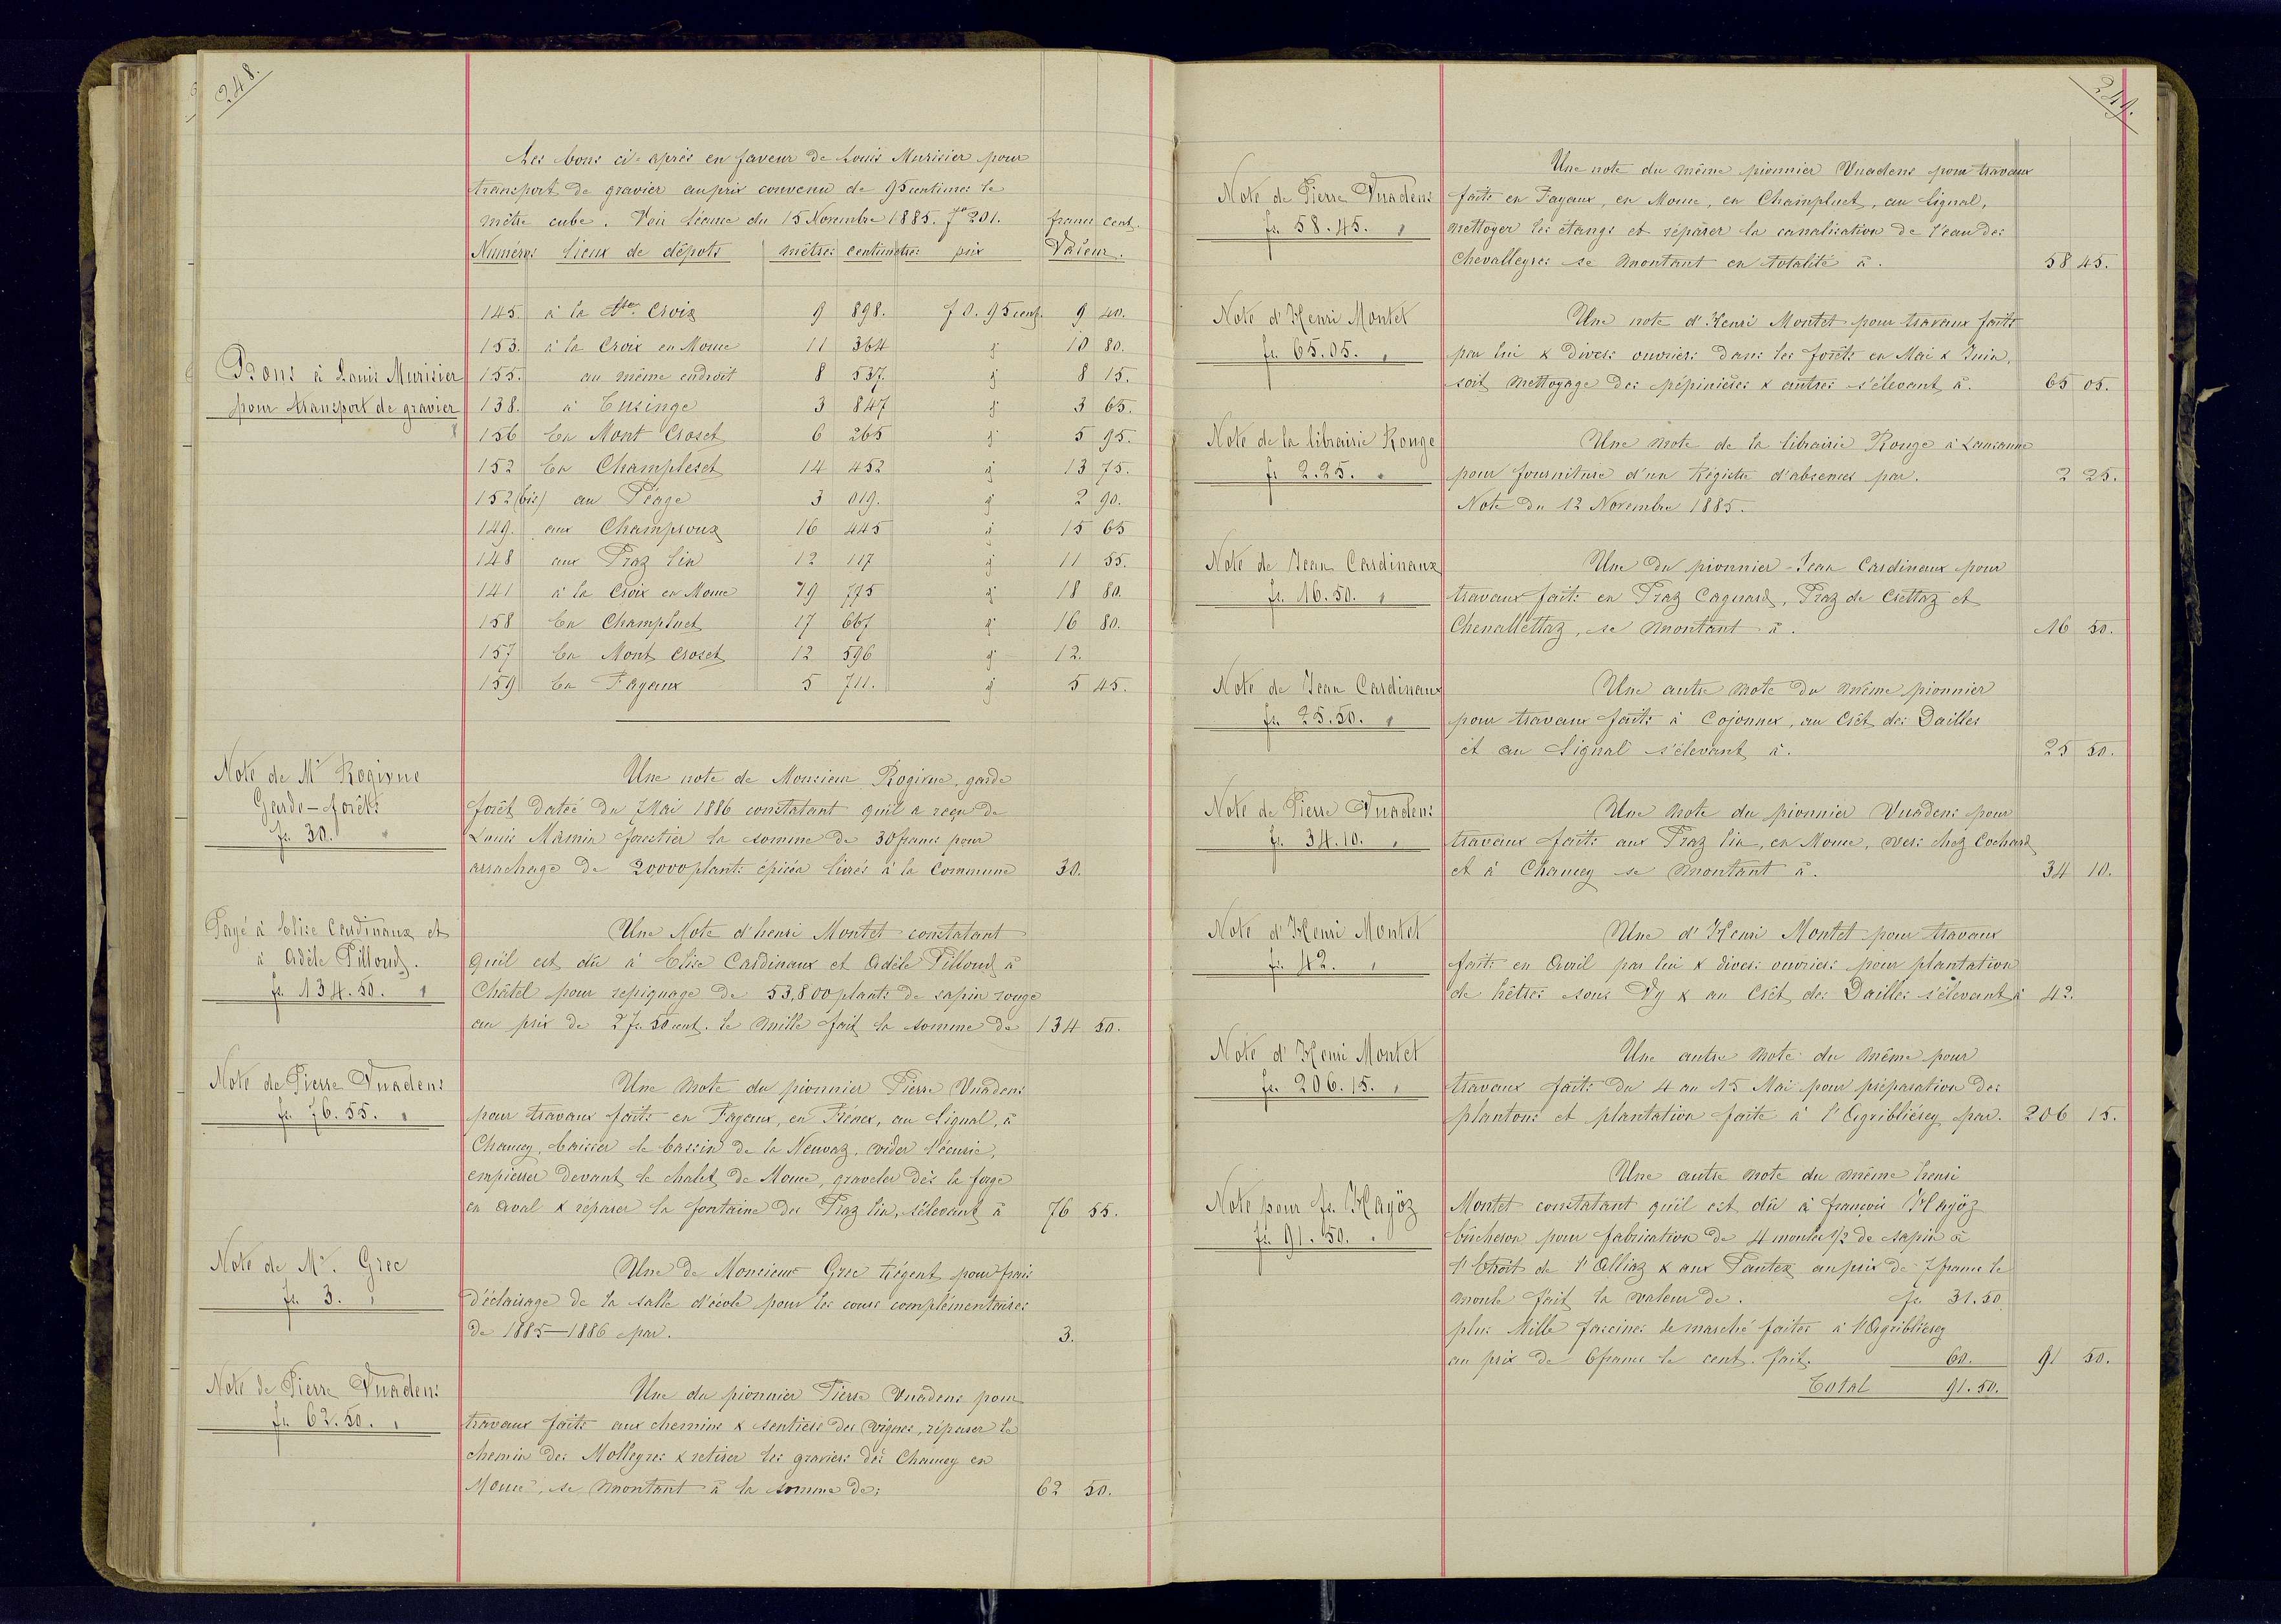 248.
Les bons ci-après en faveur de Louis Murisier pour
transport de gravier au prix convenu de 95 centimes le
mètre cube. Voir Séance du 15 Novembre 1885. fo 201.
francs cent.
Numéros lieux de dépots mètres centimètres prix Valeur.
Bons à Louis Murisier
pour transport de gravier
145. à la Ste. Croix 9 898. f 0.95 cent. 9 40.
153. à la Croix en Mouse 11 364 " 10 80.
155. au même endroit 8 537. " 8 15.
138. à Cusinge 3 847 " 3 65.
156 En Mont Croset 6 265 " 5 95.
152 En Champleset 14 452 " 13 75.
152 (bis) au Péage 3 019. " 2 90.
149. aux Champroux 16 445 " 15 65
148 aux Praz lin 12 117 " 11 55.
141 à la Croix en Mouse 19 775 " 18 80.
158 En Champluet 17 667 " 16 80.
157 En Mont Croset 12 596 " 12.
159 En Fayaux 5 711. " 5 45.
Note de Mr Rogivue
Garde-forêts
fr. 30.
Une note de Monsieur Rogivue, garde
forêt datée du 7 Mai 1886 constatant qu'il a reçu de
Louis Mamin forestier la somme de 30 francs pour
arrachage de 20000 plants épicéa livrés à la Commune 30.
Payé à Elise Cardinaux et
à Adèle Pilloud.
fr. 134.50.
Une Note d'henri Montet constatant
qu'il est dû à Elise Cardinaux et Adèle Pilloud à
Châtel pour repiquage de 53,800 plants de sapin rouge
au prix de 2 fr. 50 cent. le mille fait la somme de 134 50.
Note de Pierre Vuadens
fr. 76.55.
Une note du pionnier Pierre Vuadens
pour travaux faits en Fayaux, en Préaex, au Signal, à
Chaucey, baisser le bassin de la Neuvaz, vider l'écurie,
empierrer devant le chalet de Mouse, graveler dès la forge
en aval & réparer la fontaine du Praz lin, s'élevant à 76 55.
Note de Mr. Grec
fr. 3.
Une de Monsieur Grec Régent, pour frais
d'éclairage de la salle d'école pour les cours complémentaires
de 1885–1886 par. 3.
Note de Pierre Vuadens
fr. 62.50.
Une du pionnier Pierre Vuadens pour
travaux faits aux chemins & sentiers des vignes, réparer le
chemin des Molleyres & retirer les graviers dès Chaucey en
Mouse, se montant à la somme de: 62 50.
249.
Note de Pierre Vuadens
fr. 58.45.
Une note du même pionnier Vuadens pour travaux
faits en Fayaux, en Mouse, en Champluet, au Signal,
nettoyer les étangs et réparer la canalisation de l'eau des
Chevalleyres se montant en totalité à. 58 45.
Note d'Henri Montet
fr. 65.05.
Une note d'Henri Montet pour travaux faits
par lui & divers ouvriers dans les forêts en Mai & Juin,
soit nettoyage des pépinières & autres s'élevant à. 65 05.
Note de la librairie Rouge
fr 2.25.
Une note de la librairie Rouge à Lausanne
pour fourniture d'un Régistre d'absences par. 2 25.
Note du 12 Novembre 1885.
Note de Jean Cardinaux
fr. 16.50.
Une du pionnier Jean Cardinaux pour
travaux faits en Praz Cagnard, Praz de Crettaz et
Chenallettaz, se montant à. 16 50.
Note de Jean Cardinaux
fr. 25.50.
Une autre note du même pionnier
pour travaux faits à Cojonnex, au Crêt des Dailles
et au Signal s'élevant à. 25 50.
Note de Pierre Vuadens
fr. 34.10.
Une note du pionnier Vuadens pour
travaux faits aux Praz lin, en Mouse, vers chez Cochard
et à Chaucey se montant à. 34 10.
Note d'Henri Montet
fr. 42.
Une d'Henri Montet pour travaux
faits en Avril par lui & divers ouvriers pour plantation
de hêtres sous Dy & au Crêt des Dailles s'élevant à 42.
Note d'Henri Montet
fr. 206.15.
Une autre note du même pour
travaux faits du 4 au 15 Mai pour préparation des
plantons et plantation faite à l'Agribliérey par. 206 15.
Note pour fr. Hayöz
fr. 91.50.
Une autre note du même henri
Montet constatant qu'il est dû à françois Hayöz
bûcheron pour fabrication de 4 moules 1/2 de sapin à
l'Etroit de l'Alliaz & aux Pautex au prix de 7 francs le
moule fait la valeur de. fr. 31.50
plus Mille fascines de marché faites à l'Agribliérey
au prix de 6 francs le cent. fait. 60. 91 50.
Total 91.50.